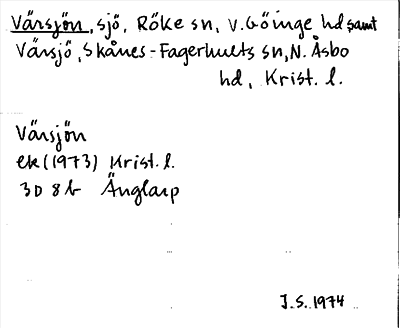 Värsjön, sjö, Röke sn, V. Göinge hd samt
Värsjö, Skånes-Fagerhults sn, N. Åsbo
hd, Krist. l.
Värsjön
ek (1973) Krist. l.
3D 8b Änglarp
J.S. 1974